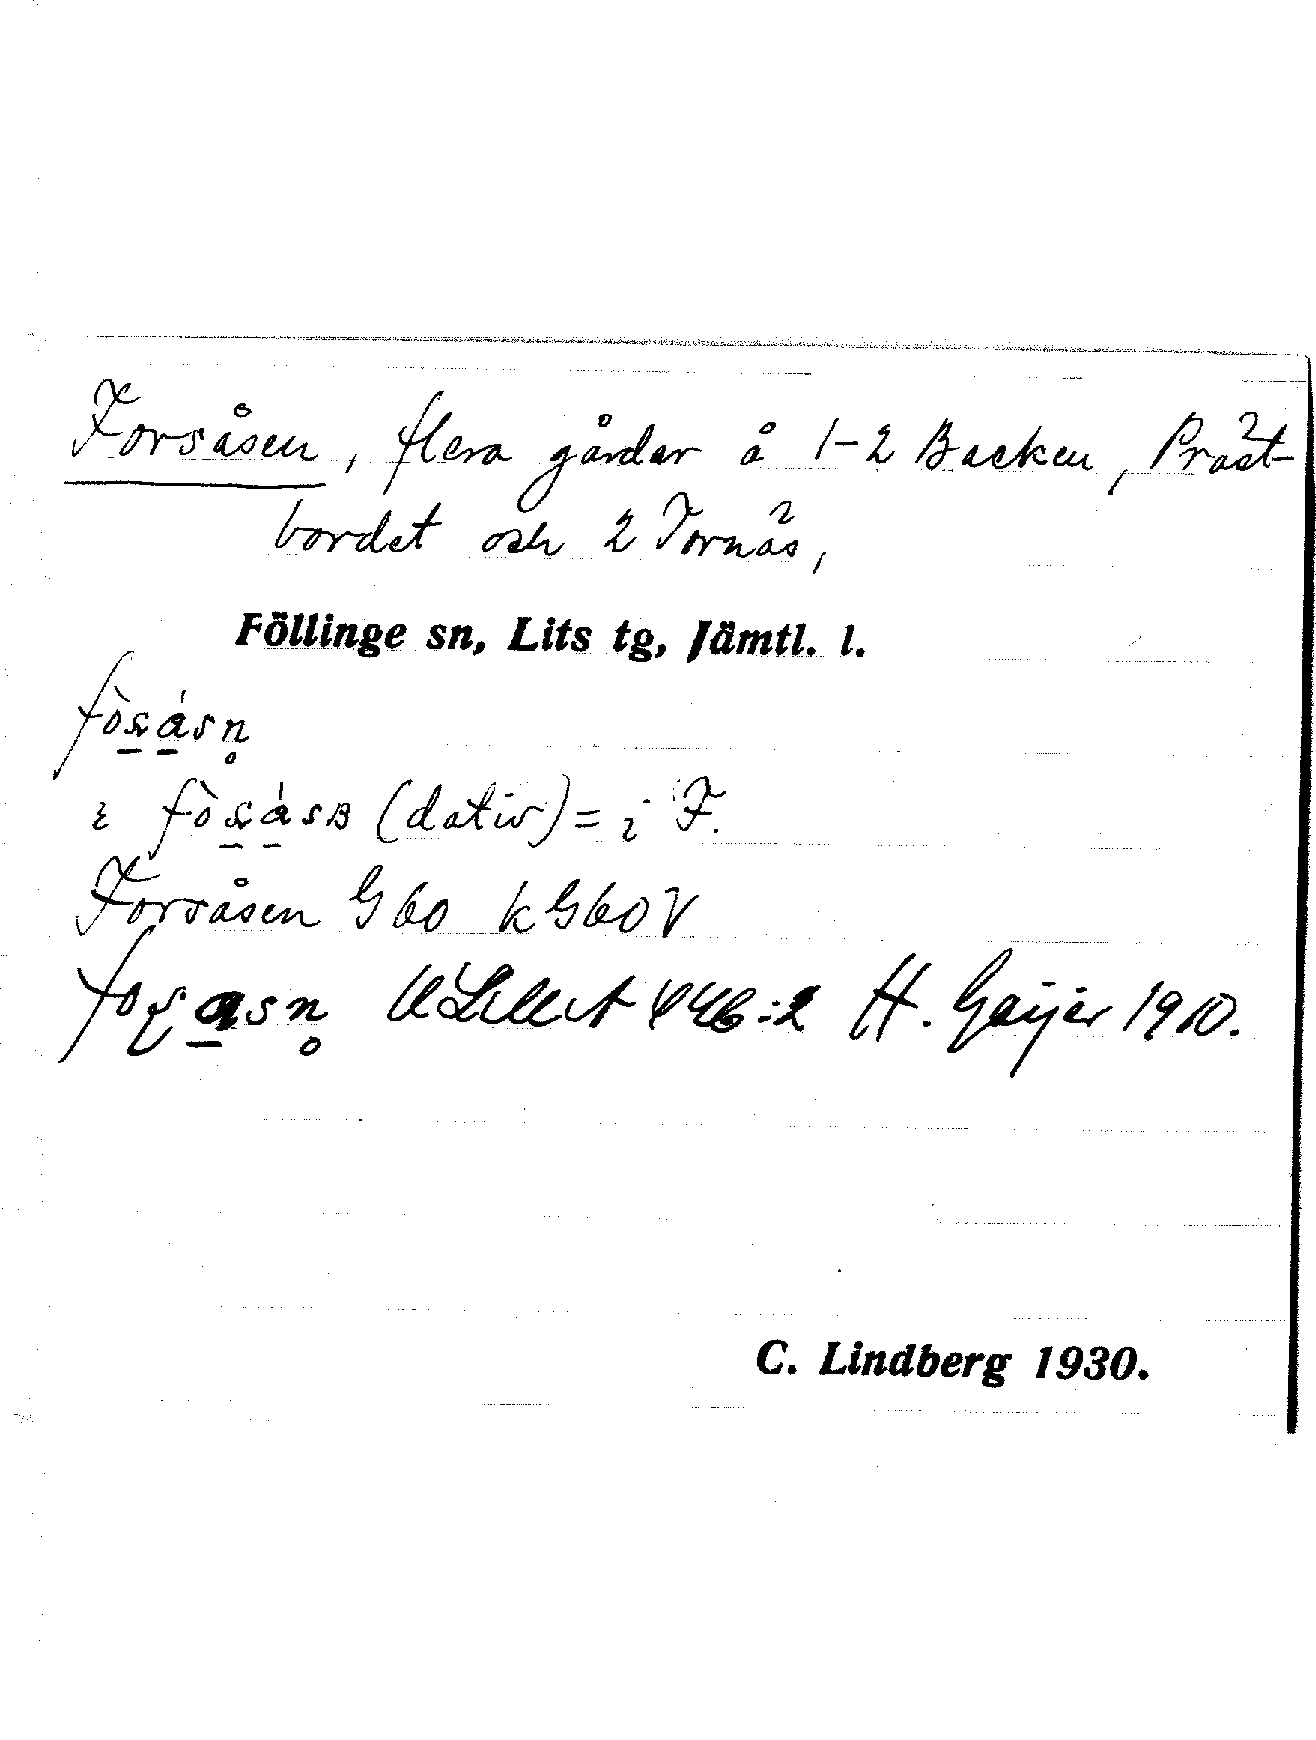 Forsåsen, flera gårdar å 1-2 Backen, Präst-
bordet och 2 Tornäs,
Föllinge sn, Lits tg, Jämtl. l.
fòsásn̥
i fòsásʙ (dativ) = i F.
Forsåsen G60 kG60V
fosasn̥ 446:2 H. Geijer 1910.
C. Lindberg 1930.